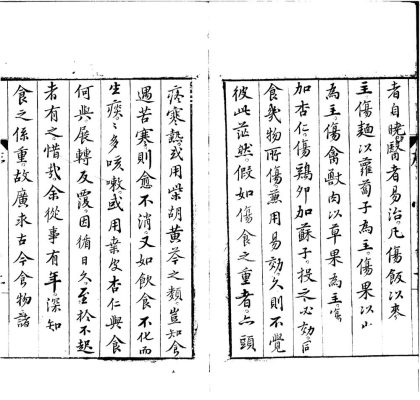 者自曉醫者易治。凡傷飯以麥
主。傷麵以蘿蔔子為主。傷果以山
為主。傷禽獸肉以草果為主。
加杏仁。傷鷄卵加蘇子。投之必効。
食幾物所傷。兼用易効。久則不覺
彼此茫然。假如傷食之重者。亦頭
疼寒熱。或用柴胡黃芩之類。豈知食
遇苦寒則愈不消。又如飲食不化而
生痰。痰多咳嗽。或用桑皮杏仁與食
何與。展轉反覆。因循日久。至於不起
者有之。惜哉。余從事有年。深知
食之係重。故廣求古今食物諸